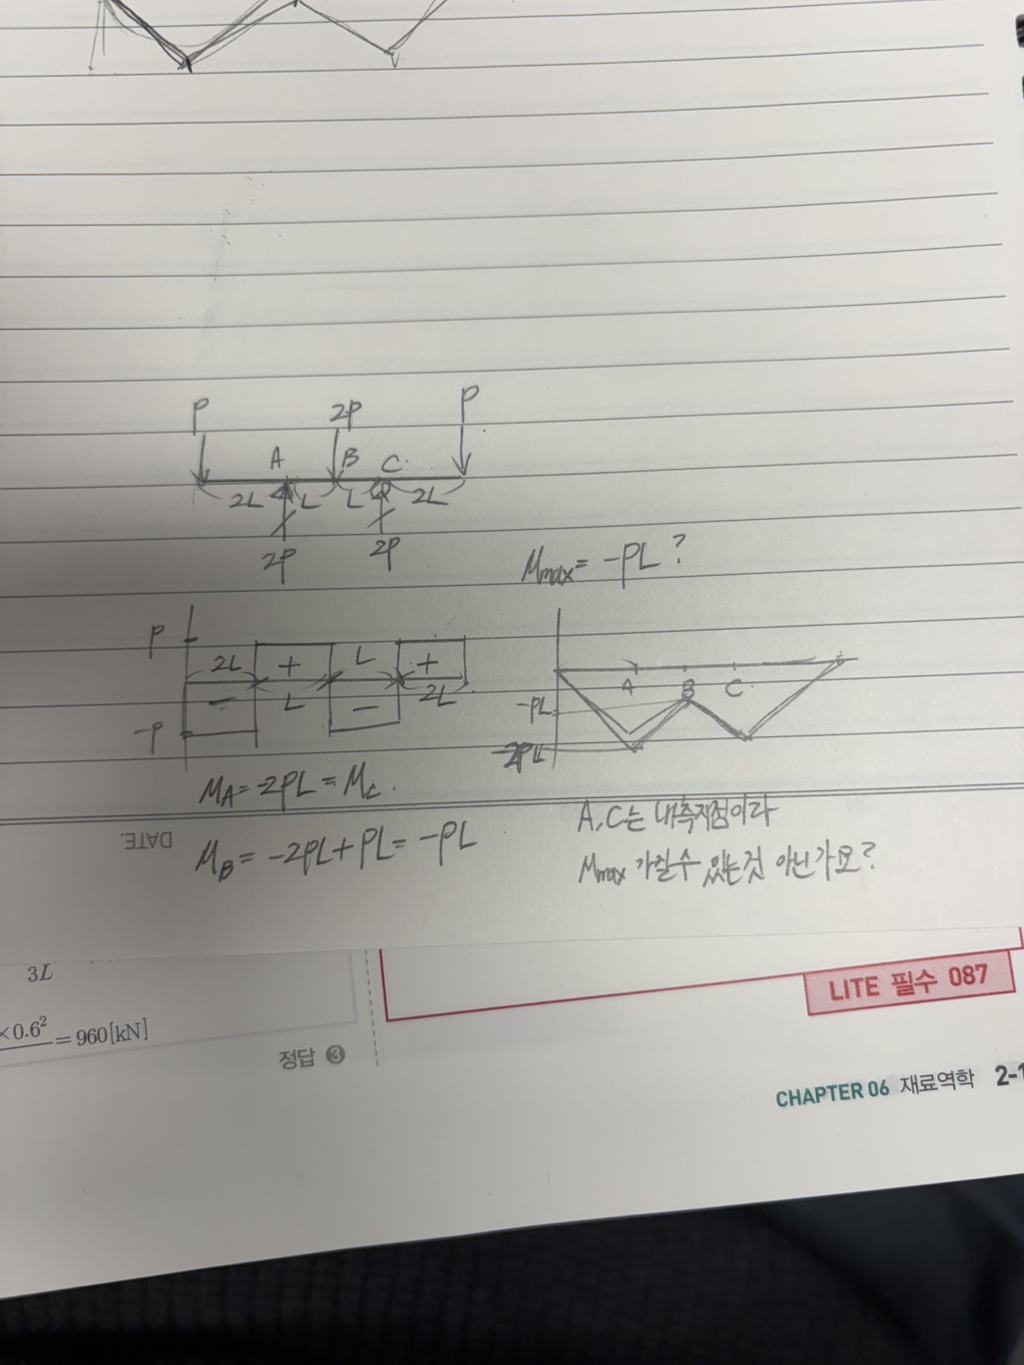 P 2P P
A B C.
2L L L 2L
2P 2P
Mmax = -PL ?
P
2L + L +
- L - 2L
-P
A B C
-PL
-2PL
MA = -2PL = Mc.
MB = -2PL + PL = -PL
A, C는 내측지점이라
Mmax 가질수 있는것 아닌가요?
DATE.
3L
×0.6²
= 960[kN]
정답 ❸
LITE 필수 087
CHAPTER 06 재료역학 2-1